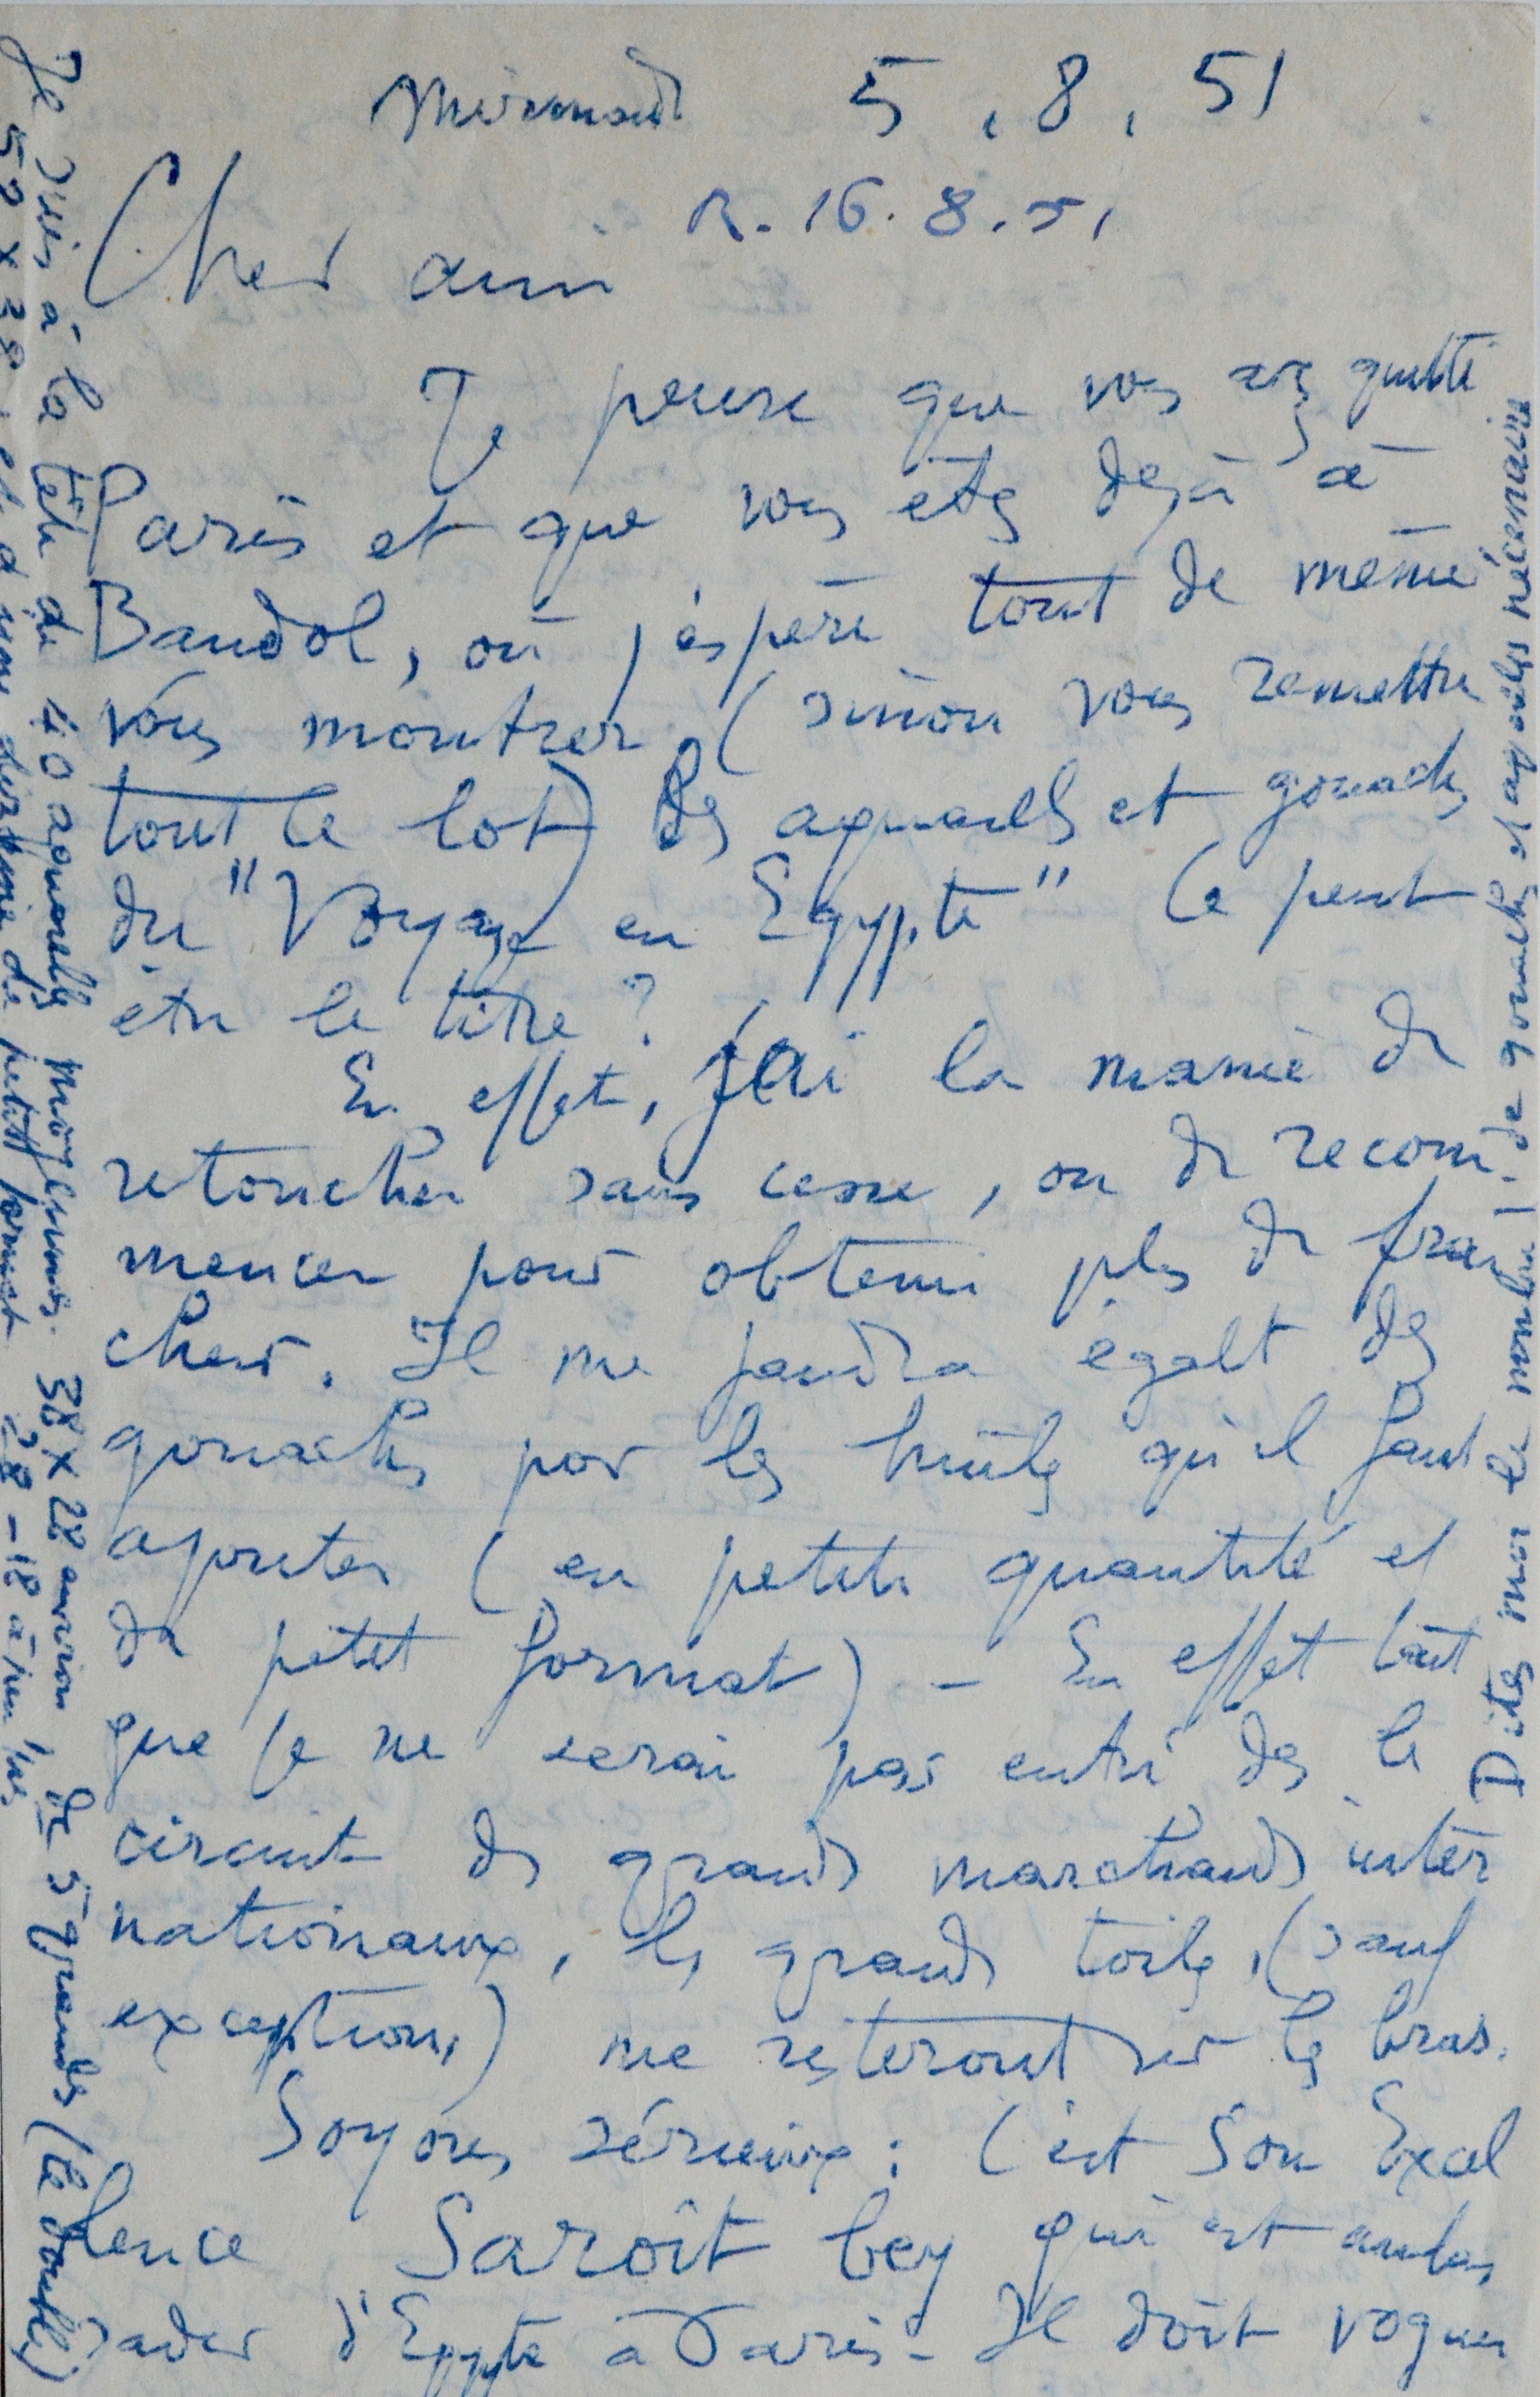 Mirmande 5.8.51
R. 16.8.51
Cher ami
Je pense que vous avez quitté
Paris et que vous êtes dejà à
Bandol, où j'éspère tout de même
vous montrer, (sinon vous remettre
tout le lot) des aquarelles et gouaches
du "Voyage en Egypte" Ce peut
être le titre ?
En effet, j'ai la manie de
retoucher sans cesse, ou de recom
mencer pour obtenir plus de fraî
cheur. Il me faudra égalt des
gouaches pour les huiles qu'il faut
ajouter (en petite quantité et
de petit format) - En effet tant
que je ne serai pas entré ds le
circuit des grands marchands inter
nationaux, les grands toiles, (sauf
exceptions) me resteront sur les bras.
Soyons sérieux : C'est Son Excel
lence Saroït bey qui est ambas
sader d'Egypte à Paris - Il doit voguer
Je suis à la tête de 40 aquarelles moyennes. 38 x 28 environ de 5 grandes (le double)
52 x 38 et d'une dizaine de petits format 28 - 18 à peu près
Dites moi le nombre de gouaches et aquarelles nécessaire